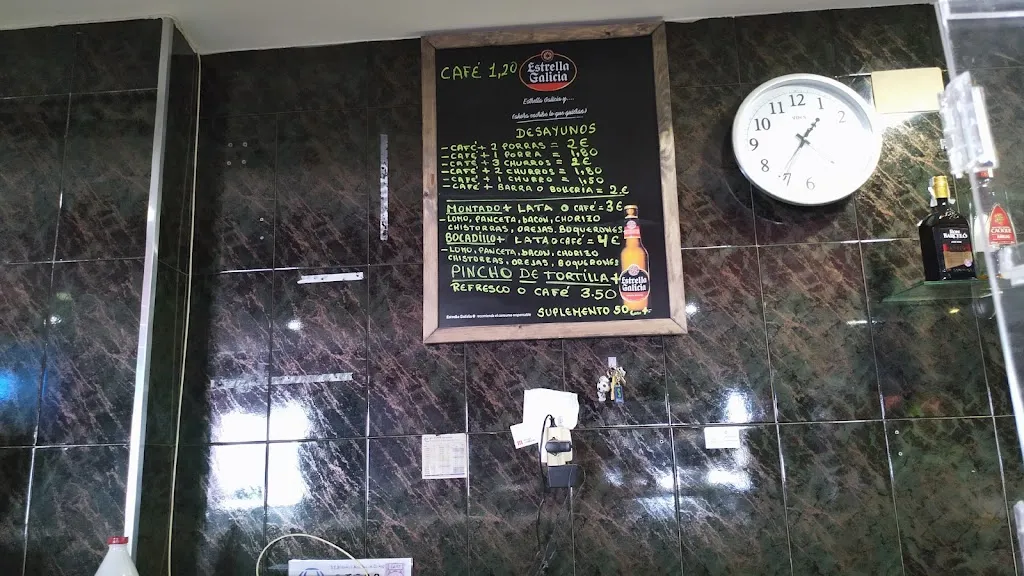 CAFÉ 1,20
Estrella Galicia
Estrella Galicia y...
DESAYUNOS
-CAFÉ + 2 PORRAS = 2€
-CAFÉ + 1 PORRA = 1,80
-CAFÉ + 3 CHURROS = 2€
-CAFÉ + 2 CHURROS = 1,80
-CAFÉ + 1 CHURRO = 1,50
-CAFÉ + BARRA O BOLLERIA = 2€
MONTADO + LATA O CAFÉ = 3€
-LOMO, PANCETA, BACON, CHORIZO
CHISTORRAS, OREJAS, BOQUERONES
BOCADILLO + LATA O CAFÉ = 4€
-LOMO, PANCETA, BACON, CHORIZO
CHISTORRAS, OREJAS, BOQUERONES
PINCHO DE TORTILLA +
REFRESCO O CAFÉ 3.50
SUPLEMENTO 50
Estrella Galicia
12
1
2
6
7
8
9
10
11
RON
BARCELÓ